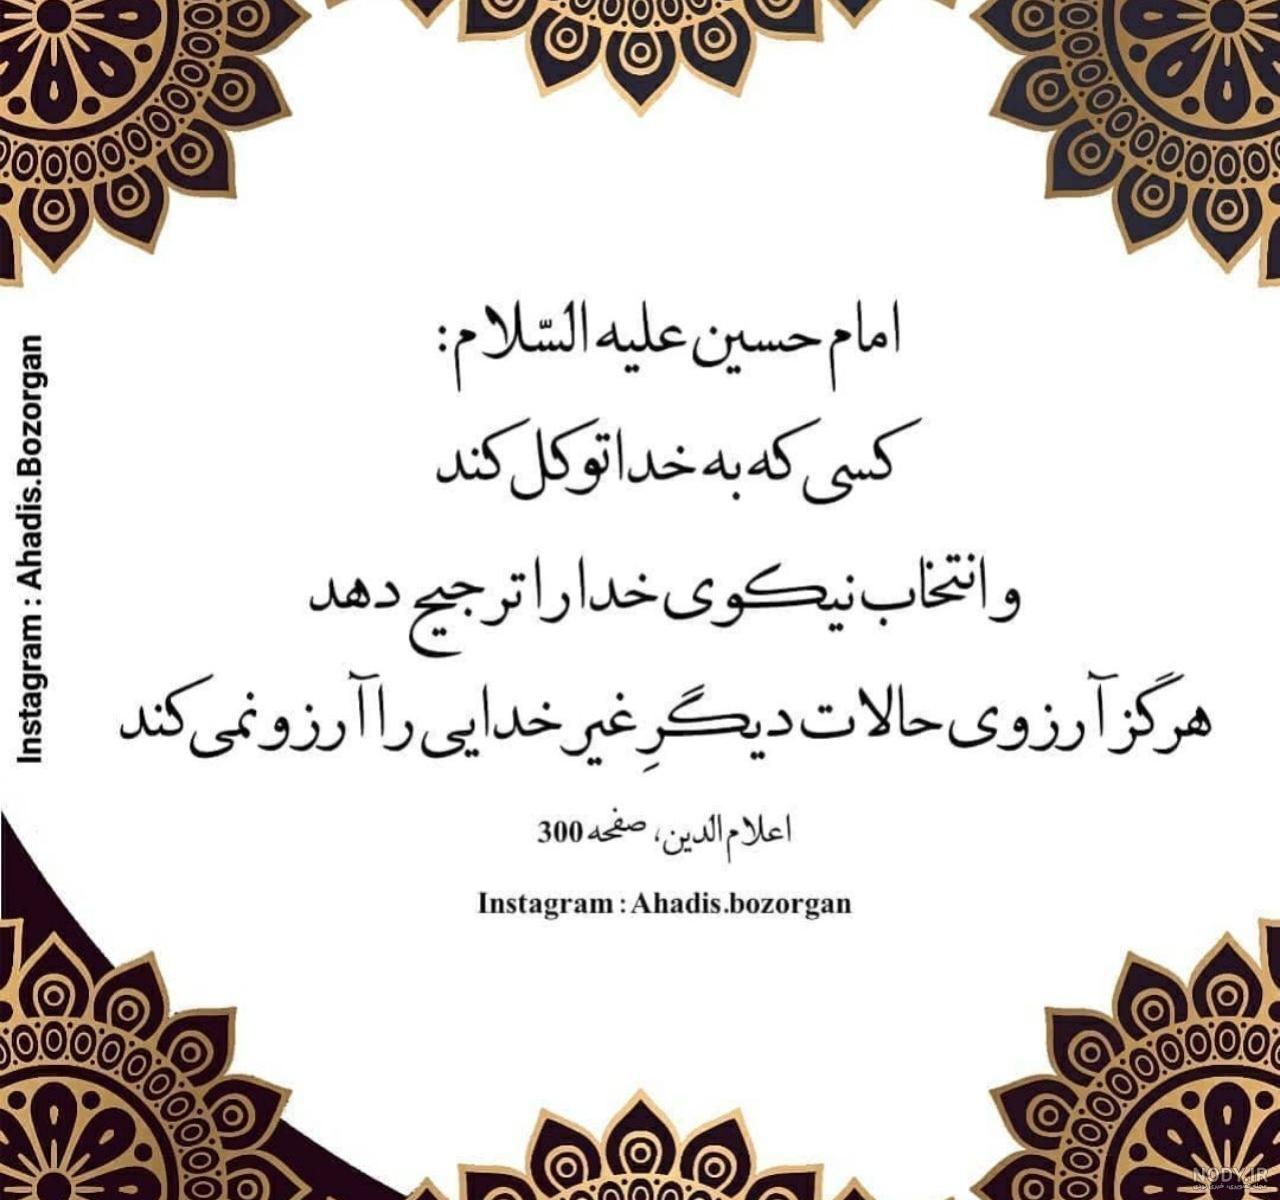 امام حسین علیه السّلام:
کسی که به خدا توکل کند
و انتخاب نیکوی خدا را ترجیح دهد
هرگز آرزوی حالات دیگرِ غیر خدایی را آرزو نمی کند
اعلام الدین، صفحه 300
Instagram : Ahadis.bozorgan
Instagram : Ahadis.Bozorgan
NODY.IR